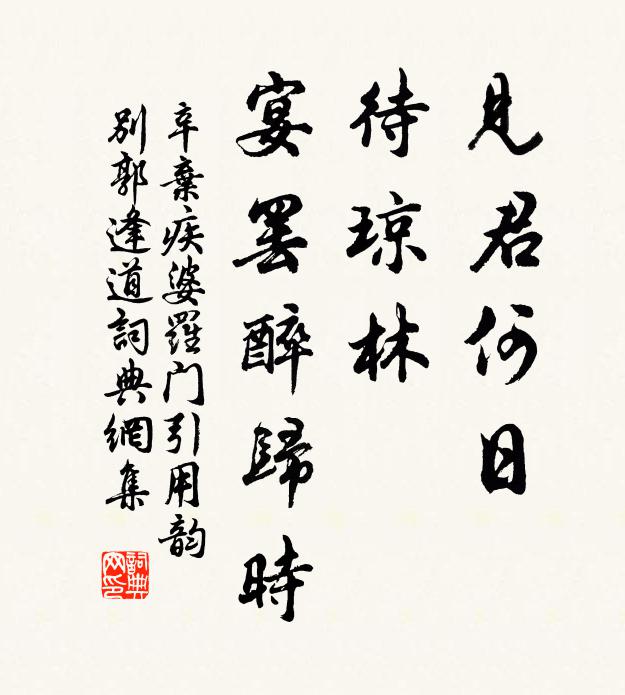 見君何日
待琼林
宴罢醉歸時
辛棄疾婆羅门引用韵
别郭逢道詞典網集
詞典
网印